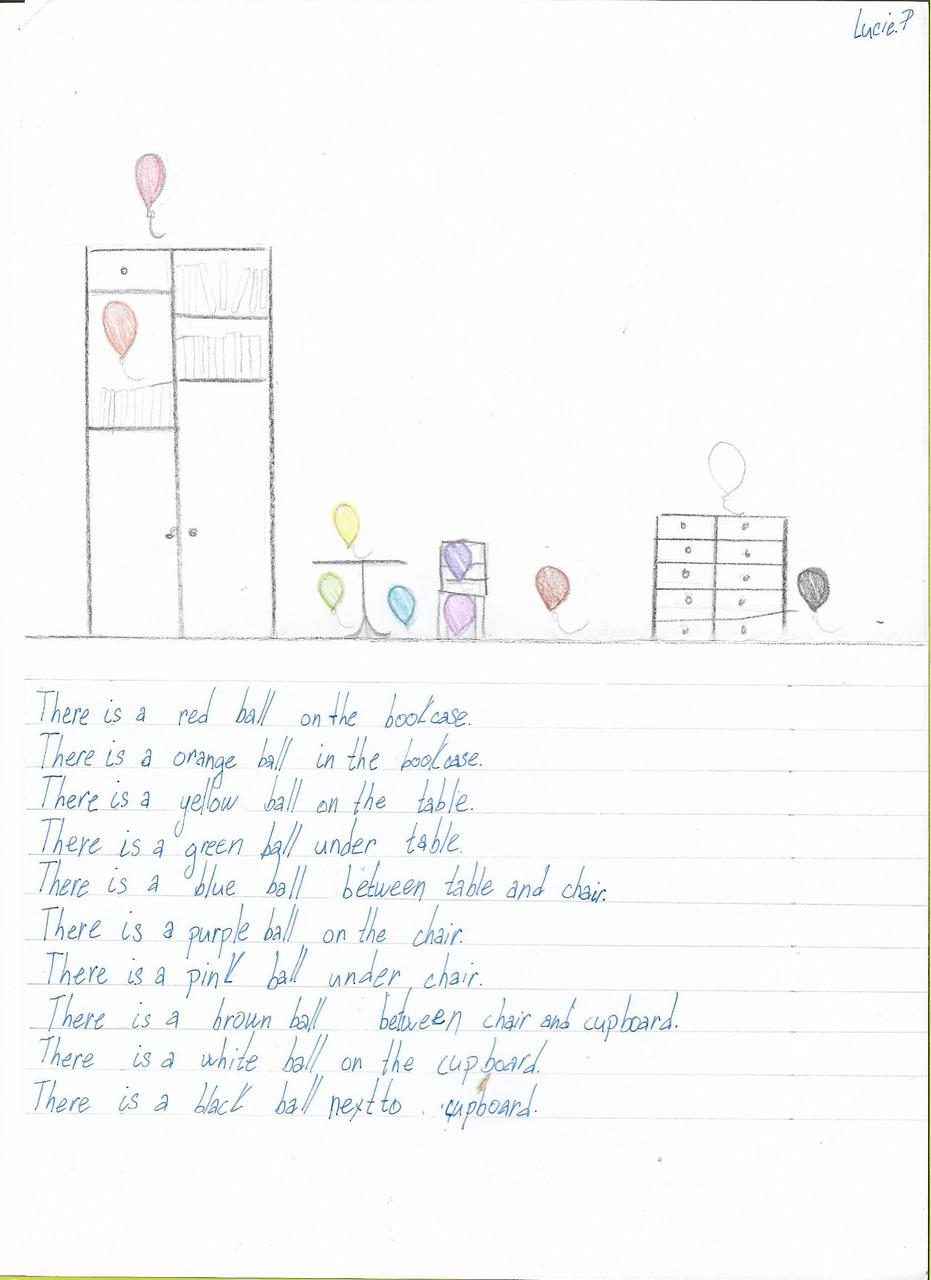 Lucie.P
There is a red ball on the bookcase.
There is a orange ball in the bookcase.
There is a yellow ball on the table.
There is a green ball under table.
There is a blue ball between table and chair.
There is a purple ball on the chair.
There is a pink ball under chair.
There is a brown ball between chair and cupboard.
There is a white ball on the cupboard.
There is a black ball next to cupboard.